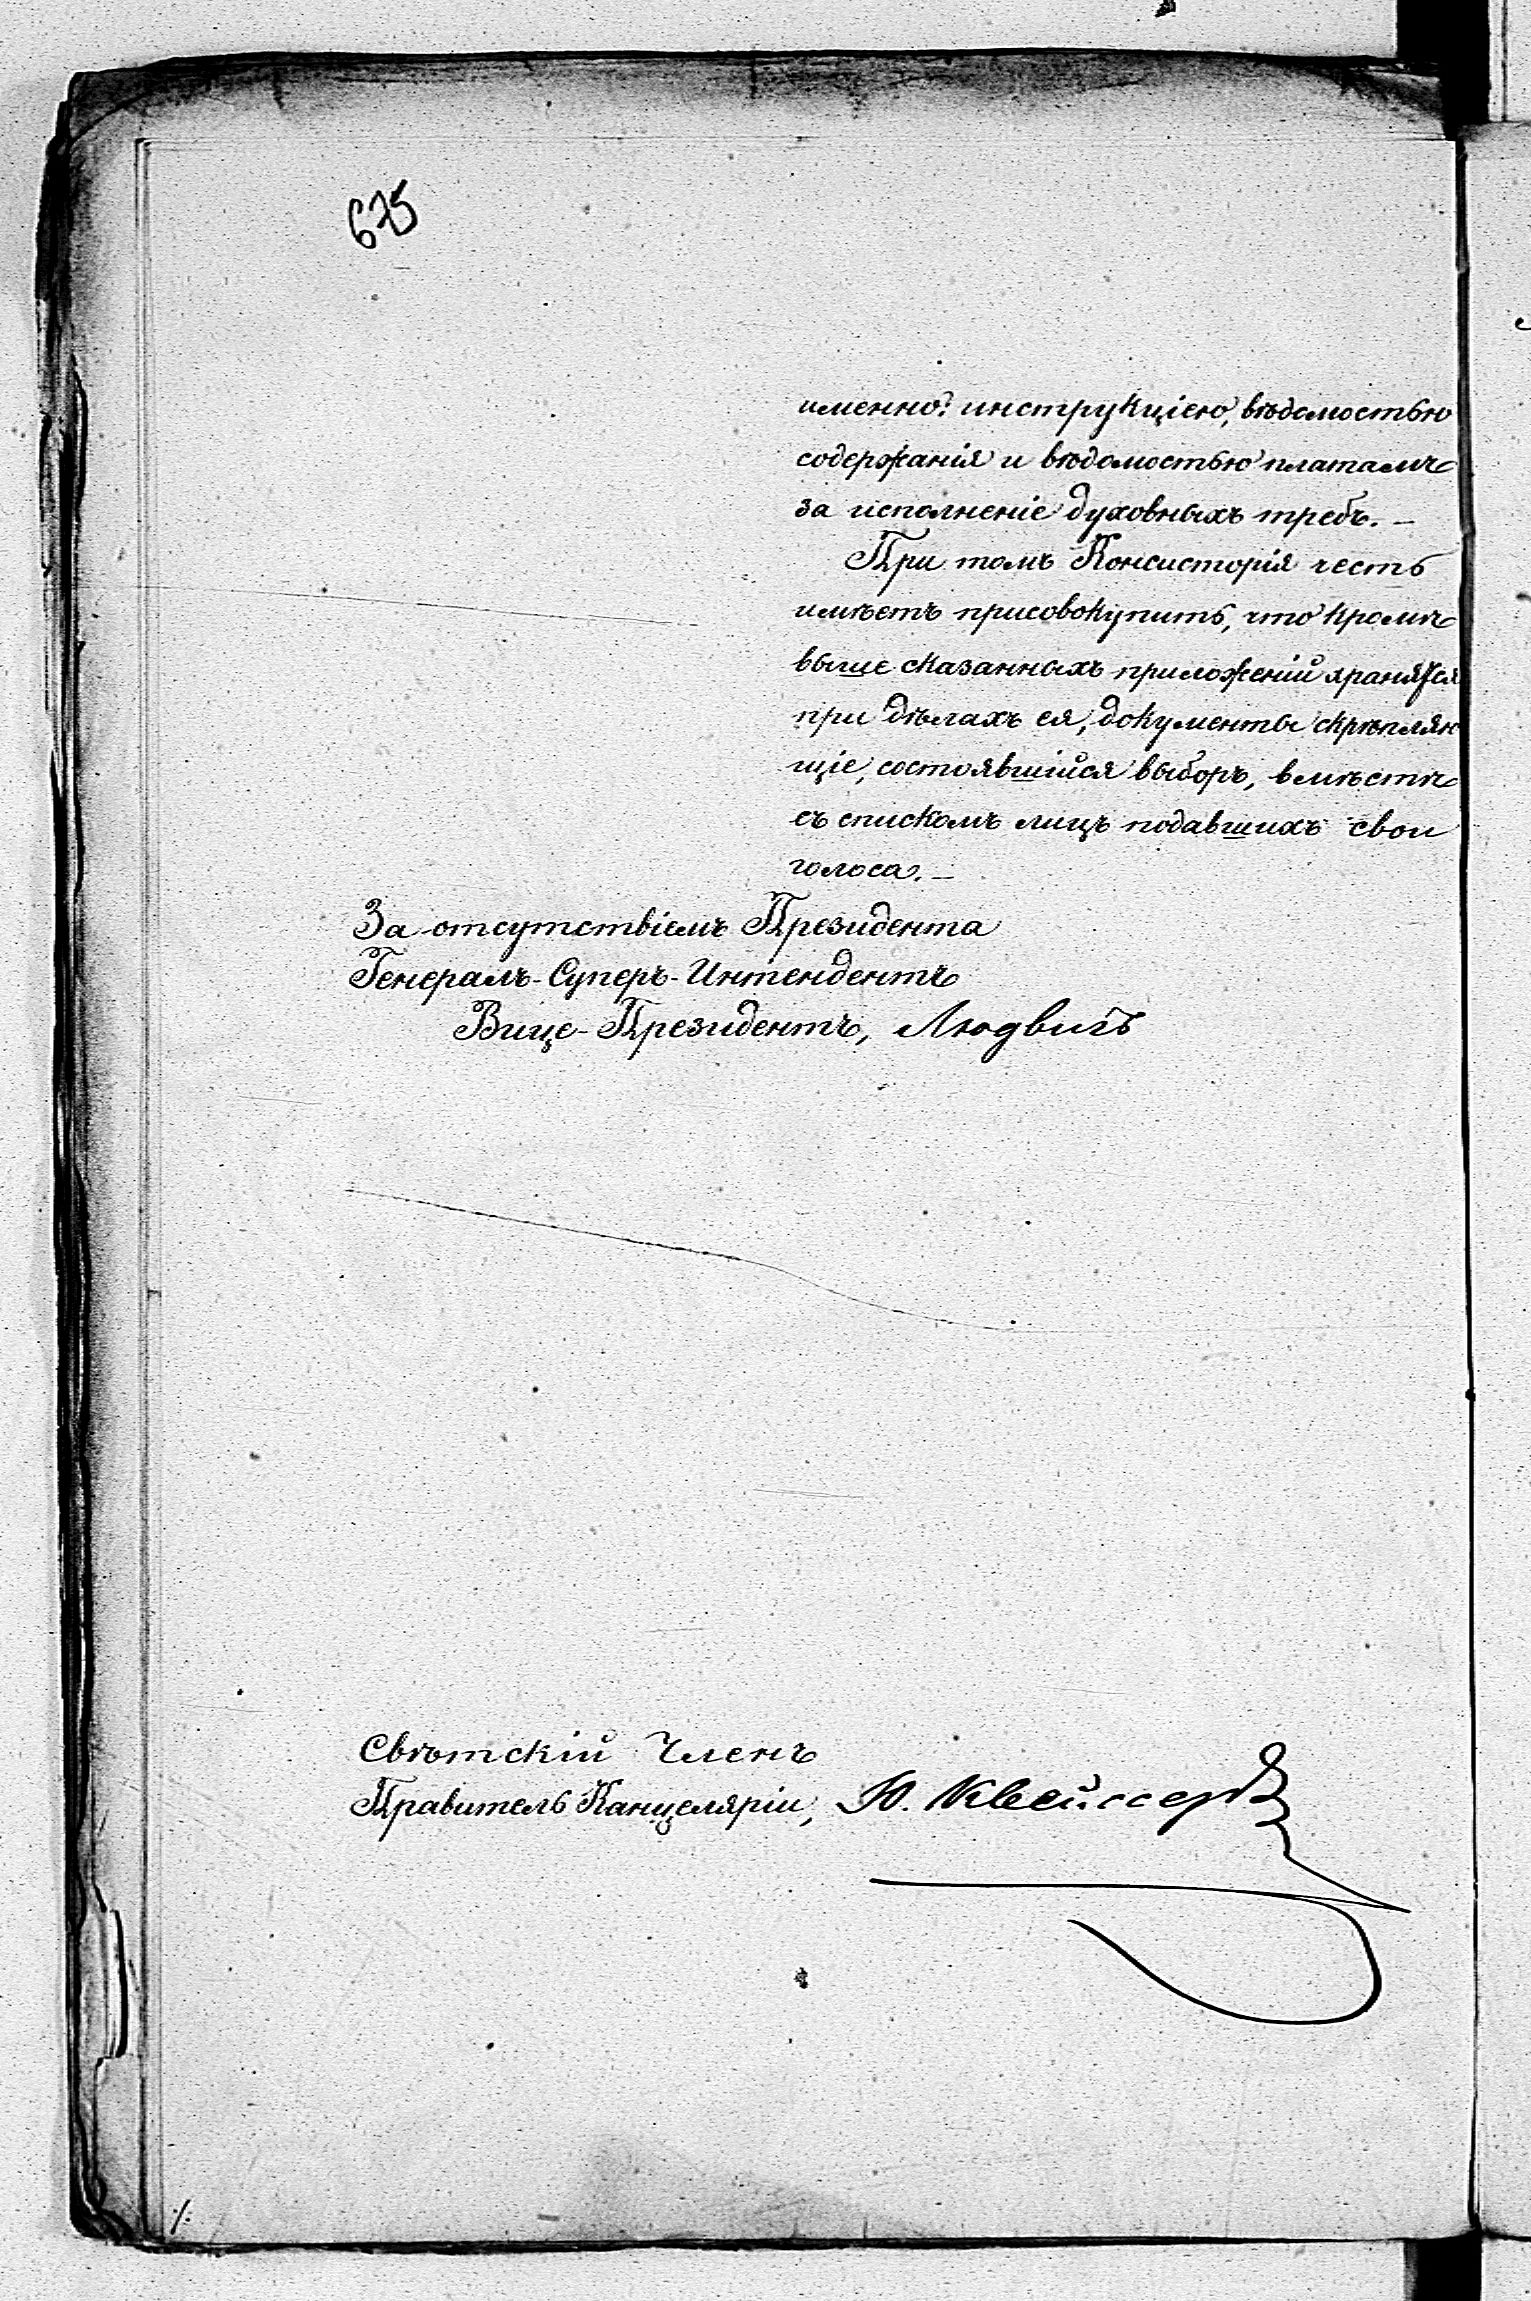 675
именно: инструкціею, вѣдомостью
содержанія и вѣдомостью платамъ
за исполненіе духовныхъ требъ. —
При томъ Консисторія честь
имѣетъ присовокупить, что кромѣ
выше сказанныхъ приложеній хранятся
при дѣлахъ ея, документы скрѣпляю
щіе, состоявшійся выборъ, вмѣстѣ
съ спискомъ лицъ подавшихъ свои
голоса. —
За отсутствіемъ Президента
Генералъ-Суперъ-Интендентъ
Вице-Президентъ, Людвигъ
Свѣтскій Членъ
Правитель Канцеляріи, Ю. Квейссеръ